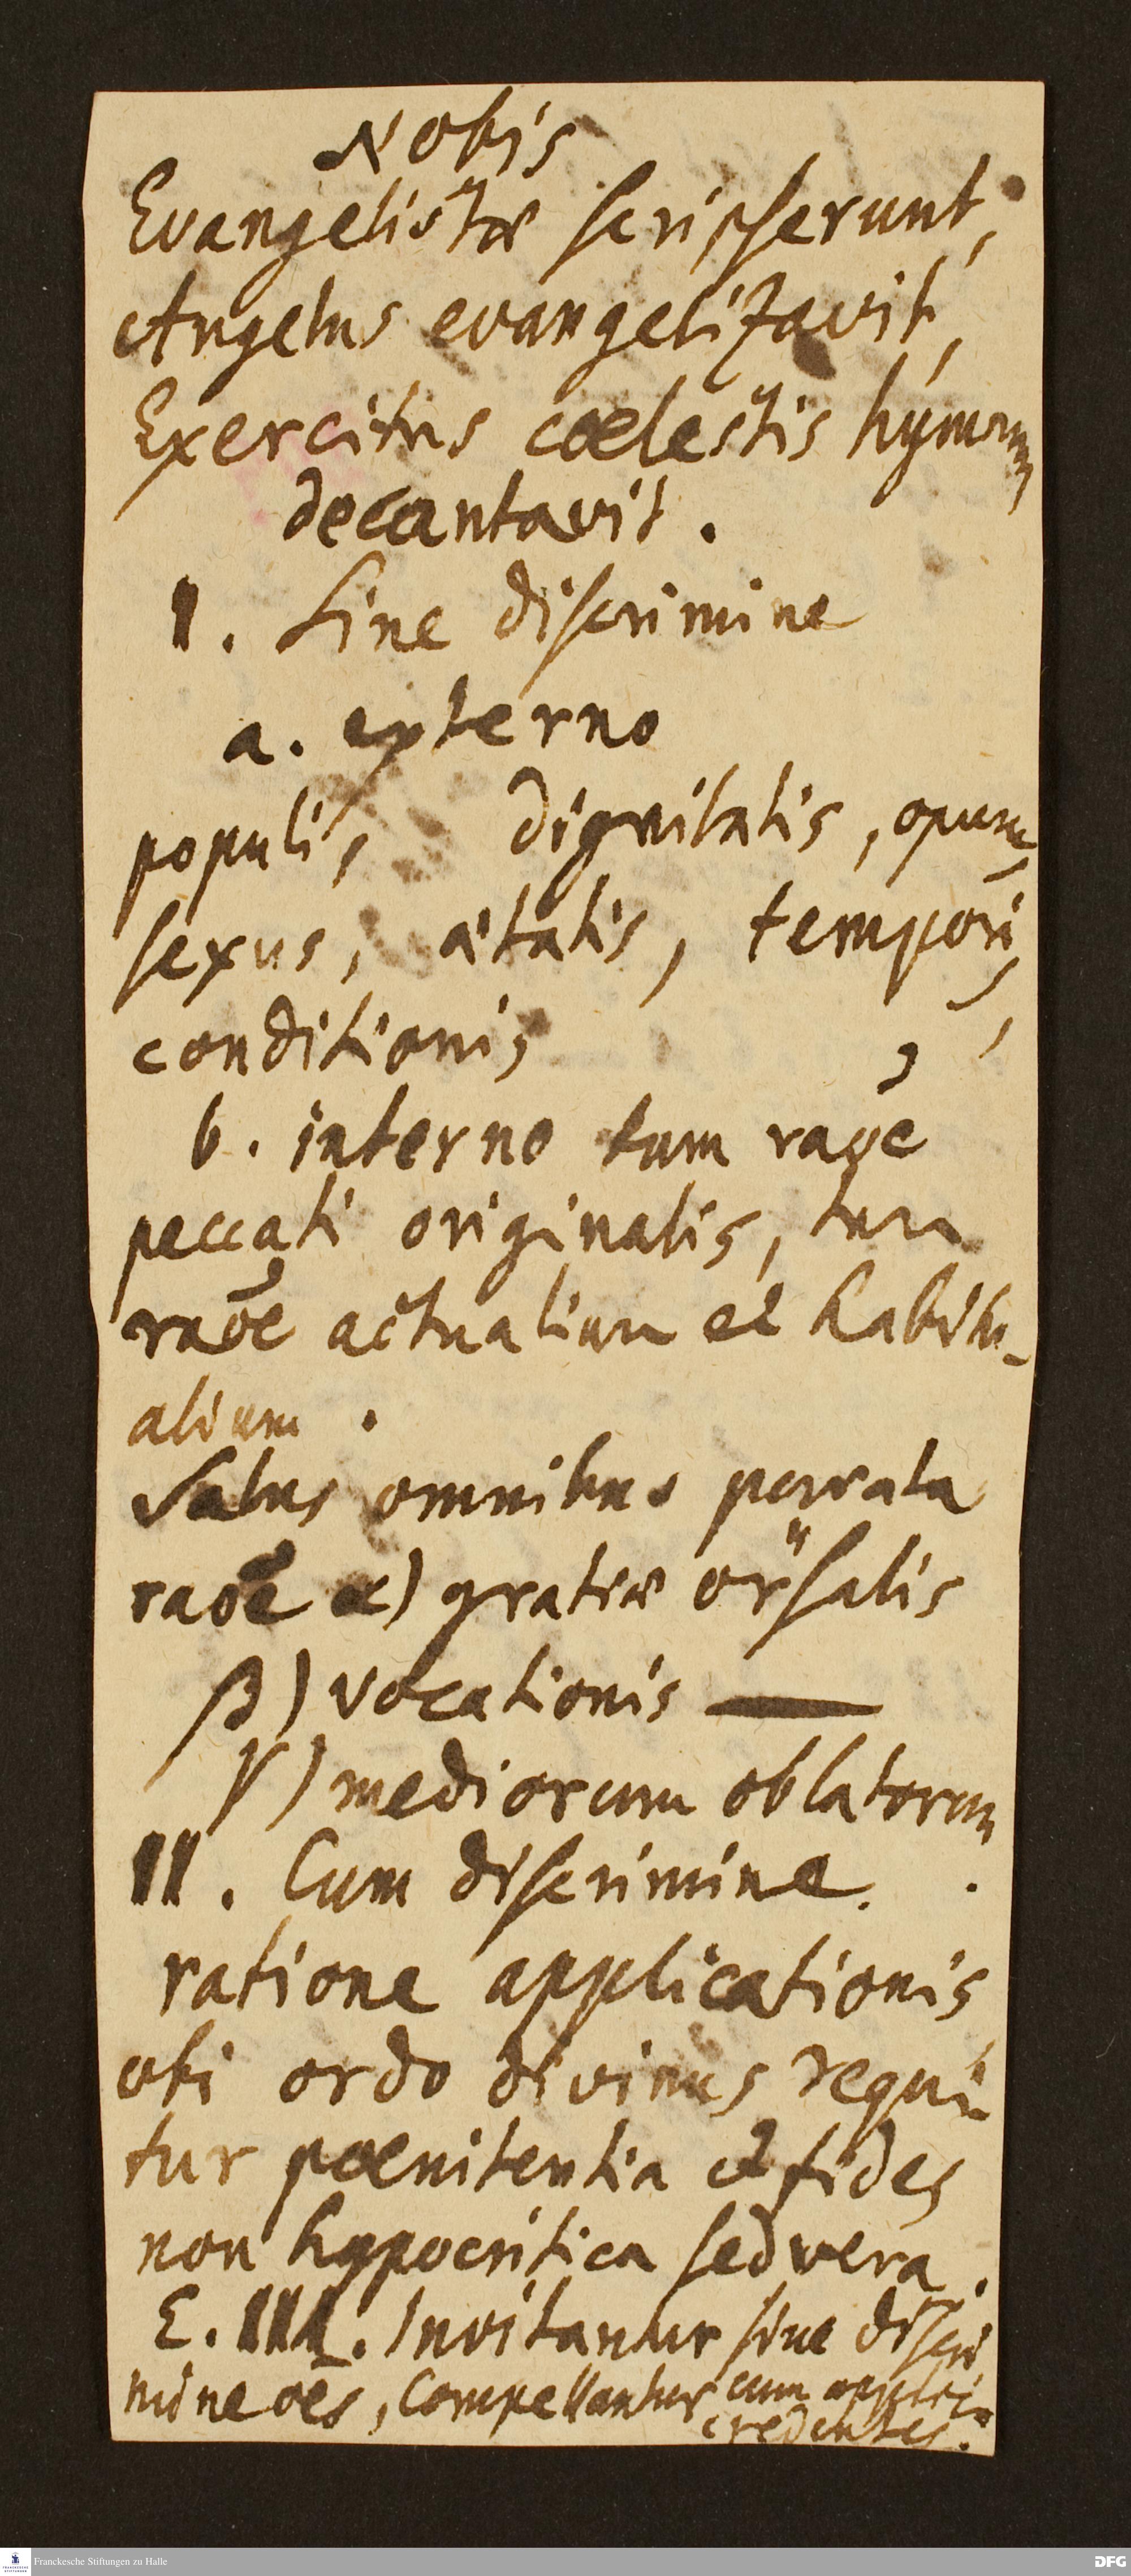 Nobis
Evangelistæ scripserunt,
Angelus evangelizavit,
Exercitus cœlestis hymnum
decantavit.
I. Sine discrimine
a. externo
populi, dignitatis, opum,
sexus, ætatis, temporis,
conditionis,
b. interno tum raōe
peccati originalis, tum
raōe actualium et habitu-
alium.
Salus omnibus parata
raōe α) gratiæ ūrsalis
β) vocationis —
γ) mediorum oblatorum
II. Cum discrimine.
ratione applicationis
ubi ordo divinus requiri-
tur pœnitentia et fides
non hypocritica sed vera.
E. III. Invitantur sine discri
mine oēs, Compellantur cum
credentes.
Franckesche Stiftungen zu Halle
DFG